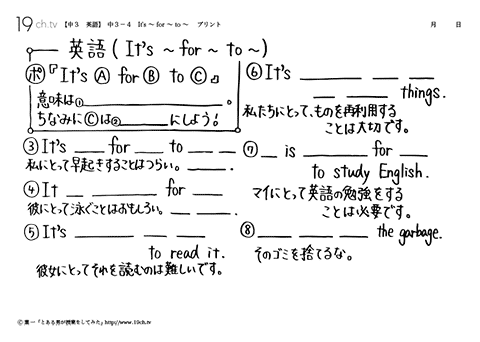 19ch.tv 【中3 英語】 中3-4 It's ~ for ~ to ~ プリント 月 日
英語 ( It's ~ for ~ to ~ )
ポ『It's Ⓐ for Ⓑ to Ⓒ』
意味は①____________。
ちなみにⒸは②______にしよう!
③ It's ___ for __ to __ __
私にとって早起きすることはつらい。____.
④ It __ ______ for ____
彼にとって泳ぐことはおもしろい。__ ____.
⑤ It's ______ ____ ____
to read it.
彼女にとってそれを読むのは難しいです。
⑥ It's ____ ____ ____
____ ____ things.
私たちにとって、ものを再利用する
ことは大切です。
⑦ __ is ______ for ____
to study English.
マイにとって英語の勉強をする
ことは必要です。
⑧ ____ ____ ____ the garbage.
そのゴミを捨てるな。
Ⓒ 葉一「とある男が授業をしてみた」http://www.19ch.tv